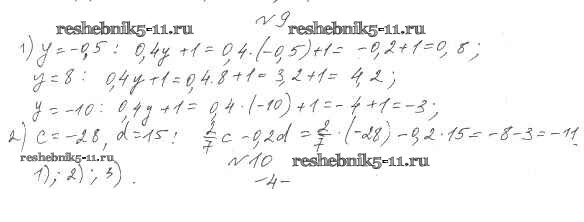 №9
reshebnik5-11.ru reshebnik5-11.ru
1) y = -0,5 : 0,4y + 1 = 0,4·(-0,5)+1 = -0,2+1=0,8;
y = 8 : 0,4y+1=0,4·8+1=3,2+1= 4,2;
y = -10: 0,4y+1= 0,4·(-10)+1=-4+1=-3;
2) c = -28, d = 15: 2/7 c - 0,2d = 2/7·(-28)-0,2·15=-8-3=-11.
reshebnik5-11.ru №10 reshebnik5-11.ru
1); 2); 3).
-4-